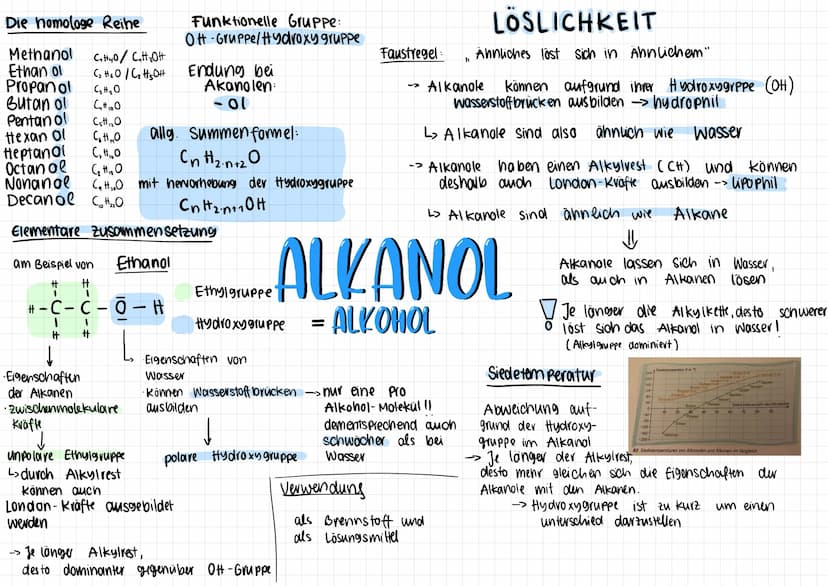 Die homologe Reihe
Methanol
Ethanol
Propanol
Butanol
Pentanol
Hexanol
Heptanol
Octanol
Nonanol
Decanol
Funktionelle Gruppe:
OH-Gruppe/Hydroxygruppe
Endung bei
Akanolen:
-ol
allg. Summenformel:
CnH2·n+2O
mit hervorhebung der Hydroxygruppe
CnH2·n+1OH
Elementare Zusammensetzung
am Beispiel von Ethanol
H H
H-C-C-O-H
H H
Ethylgruppe
Hydroxygruppe
·Eigenschaften
der Alkanen
·zwischenmolekulare
Kräfte
unpolare Ethylgruppe
↳durch Alkylrest
können auch
London-Kräfte ausgebildet
werden
-> Je länger Alkylrest,
desto dominanter gegenüber OH-Gruppe
·Eigenschaften von
Wasser
·Können Wasserstoffbrücken
ausbilden
polare Hydroxygruppe
->nur eine pro
Alkohol-Molekül!!
dementsprechend auch
schwächer als bei
Wasser
ALKANOL
= ALKOHOL
Verwendung
als Brennstoff und
als Lösungsmittel
LÖSLICHKEIT
Faustregel: „Ähnliches löst sich in Ähnlichem"
-> Alkanole können aufgrund ihrer Hydroxygrppe (OH)
Wasserstoffbrücken ausbilden -> hydrophil
↳ Alkanole sind also ähnlich wie Wasser
-> Alkanole haben einen Alkylrest (CH) und können
deshalb auch London-Kräfte ausbilden -> lipophil
↳ Alkanole sind ähnlich wie Alkane
⇓
Alkanole lassen sich in Wasser,
als auch in Alkanen lösen
! Je länger die Alkylkette, desto schwerer
löst sich das Alkanol in Wasser!
(Alkylgruppe dominiert)
Siedetemperatur
Abweichung auf-
grund der Hydroxy-
gruppe im Alkanol
-> Je länger der Alkylrest,
desto mehr gleichen sich die Eigenschaften der
Alkanole mit den Alkanen.
-> Hydroxygruppe ist zu kurz um einen
unterschied darzustellen